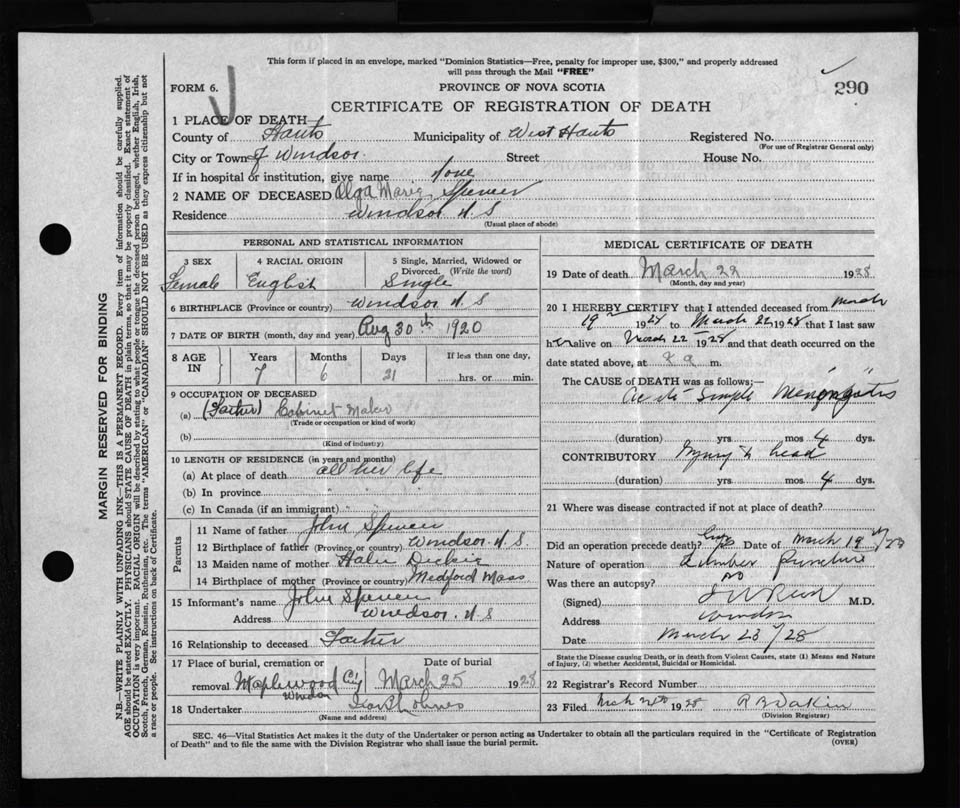 This form if placed in an envelope, marked "Dominion Statistics—Free, penalty for improper use, $300," and properly addressed
will pass through the Mail "FREE"
FORM 6.
J
PROVINCE OF NOVA SCOTIA
290
CERTIFICATE OF REGISTRATION OF DEATH
1 PLACE OF DEATH—
County of Hants Municipality of West Hants Registered No.
(For use of Registrar General only)
City or Town of Windsor Street House No.
If in hospital or institution, give name None
2 NAME OF DECEASED Olga Marie Spencer
Residence Windsor N.S
(Usual place of abode)
PERSONAL AND STATISTICAL INFORMATION
3 SEX 4 RACIAL ORIGIN 5 Single, Married, Widowed or
Divorced. (Write the word)
Female English Single
6 BIRTHPLACE (Province or country) Windsor N.S
7 DATE OF BIRTH (month, day and year) Aug 30th 1920
8 AGE IN Years Months Days If less than one day,
7 6 21 hrs. or min.
9 OCCUPATION OF DECEASED
(a) (Father) Cabinet Maker
(Trade or occupation or kind of work)
(b)
(Kind of industry)
10 LENGTH OF RESIDENCE (in years and months)
(a) At place of death all her life
(b) In province " " "
(c) In Canada (if an immigrant) " "
Parents
11 Name of father John Spencer
12 Birthplace of father (Province or country) Windsor N.S.
13 Maiden name of mother Dickie
14 Birthplace of mother (Province or country) Medford Mass
15 Informant's name John Spencer
Address Windsor. N.S
16 Relationship to deceased Father
17 Place of burial, cremation or Date of burial
removal Maplewood Windsor March 25 1928
18 Undertaker
(Name and address)
MEDICAL CERTIFICATE OF DEATH
19 Date of death March 22 1928
(Month, day and year)
20 I HEREBY CERTIFY that I attended deceased from March
19 1928 to March 22 1928 that I last saw
her alive on March 22 1928 and that death occurred on the
date stated above, at a m.
The CAUSE OF DEATH was as follows;—
Acute Simple Meningitis
(duration) yrs mos 4 dys.
CONTRIBUTORY Injury to head
(duration) yrs mos 4 dys.
21 Where was disease contracted if not at place of death?
Did an operation precede death? Date of March 19th/28
Nature of operation Lumbar puncture
Was there an autopsy? no
(Signed) M.D.
Address Windsor
Date March 23/28
State the Disease causing Death, or in death from Violent Causes, state (1) Means and Nature
of Injury, (2) whether Accidental, Suicidal or Homicidal.
22 Registrar's Record Number
23 Filed 1928 Dakin
(Division Registrar)
SEC. 46—Vital Statistics Act makes it the duty of the Undertaker or person acting as Undertaker to obtain all the particulars required in the "Certificate of Registration
of Death" and to file the same with the Division Registrar who shall issue the burial permit.
(OVER)
MARGIN RESERVED FOR BINDING
N.B.—WRITE PLAINLY WITH UNFADING INK—THIS IS A PERMANENT RECORD. Every item of information should be carefully supplied.
AGE should be stated EXACTLY. PHYSICIANS should STATE CAUSE OF DEATH in plain terms, so that it may be properly classified. Exact statement of
OCCUPATION is very important. RACIAL ORIGIN will be described by stating to what people or tongue the deceased person belonged, whether English, Irish,
Scotch, French, German, Russian, Ruthenian, etc. The terms "AMERICAN" or "CANADIAN" SHOULD NOT BE USED as they express citizenship but not
a race or people. See instructions on back of Certificate.